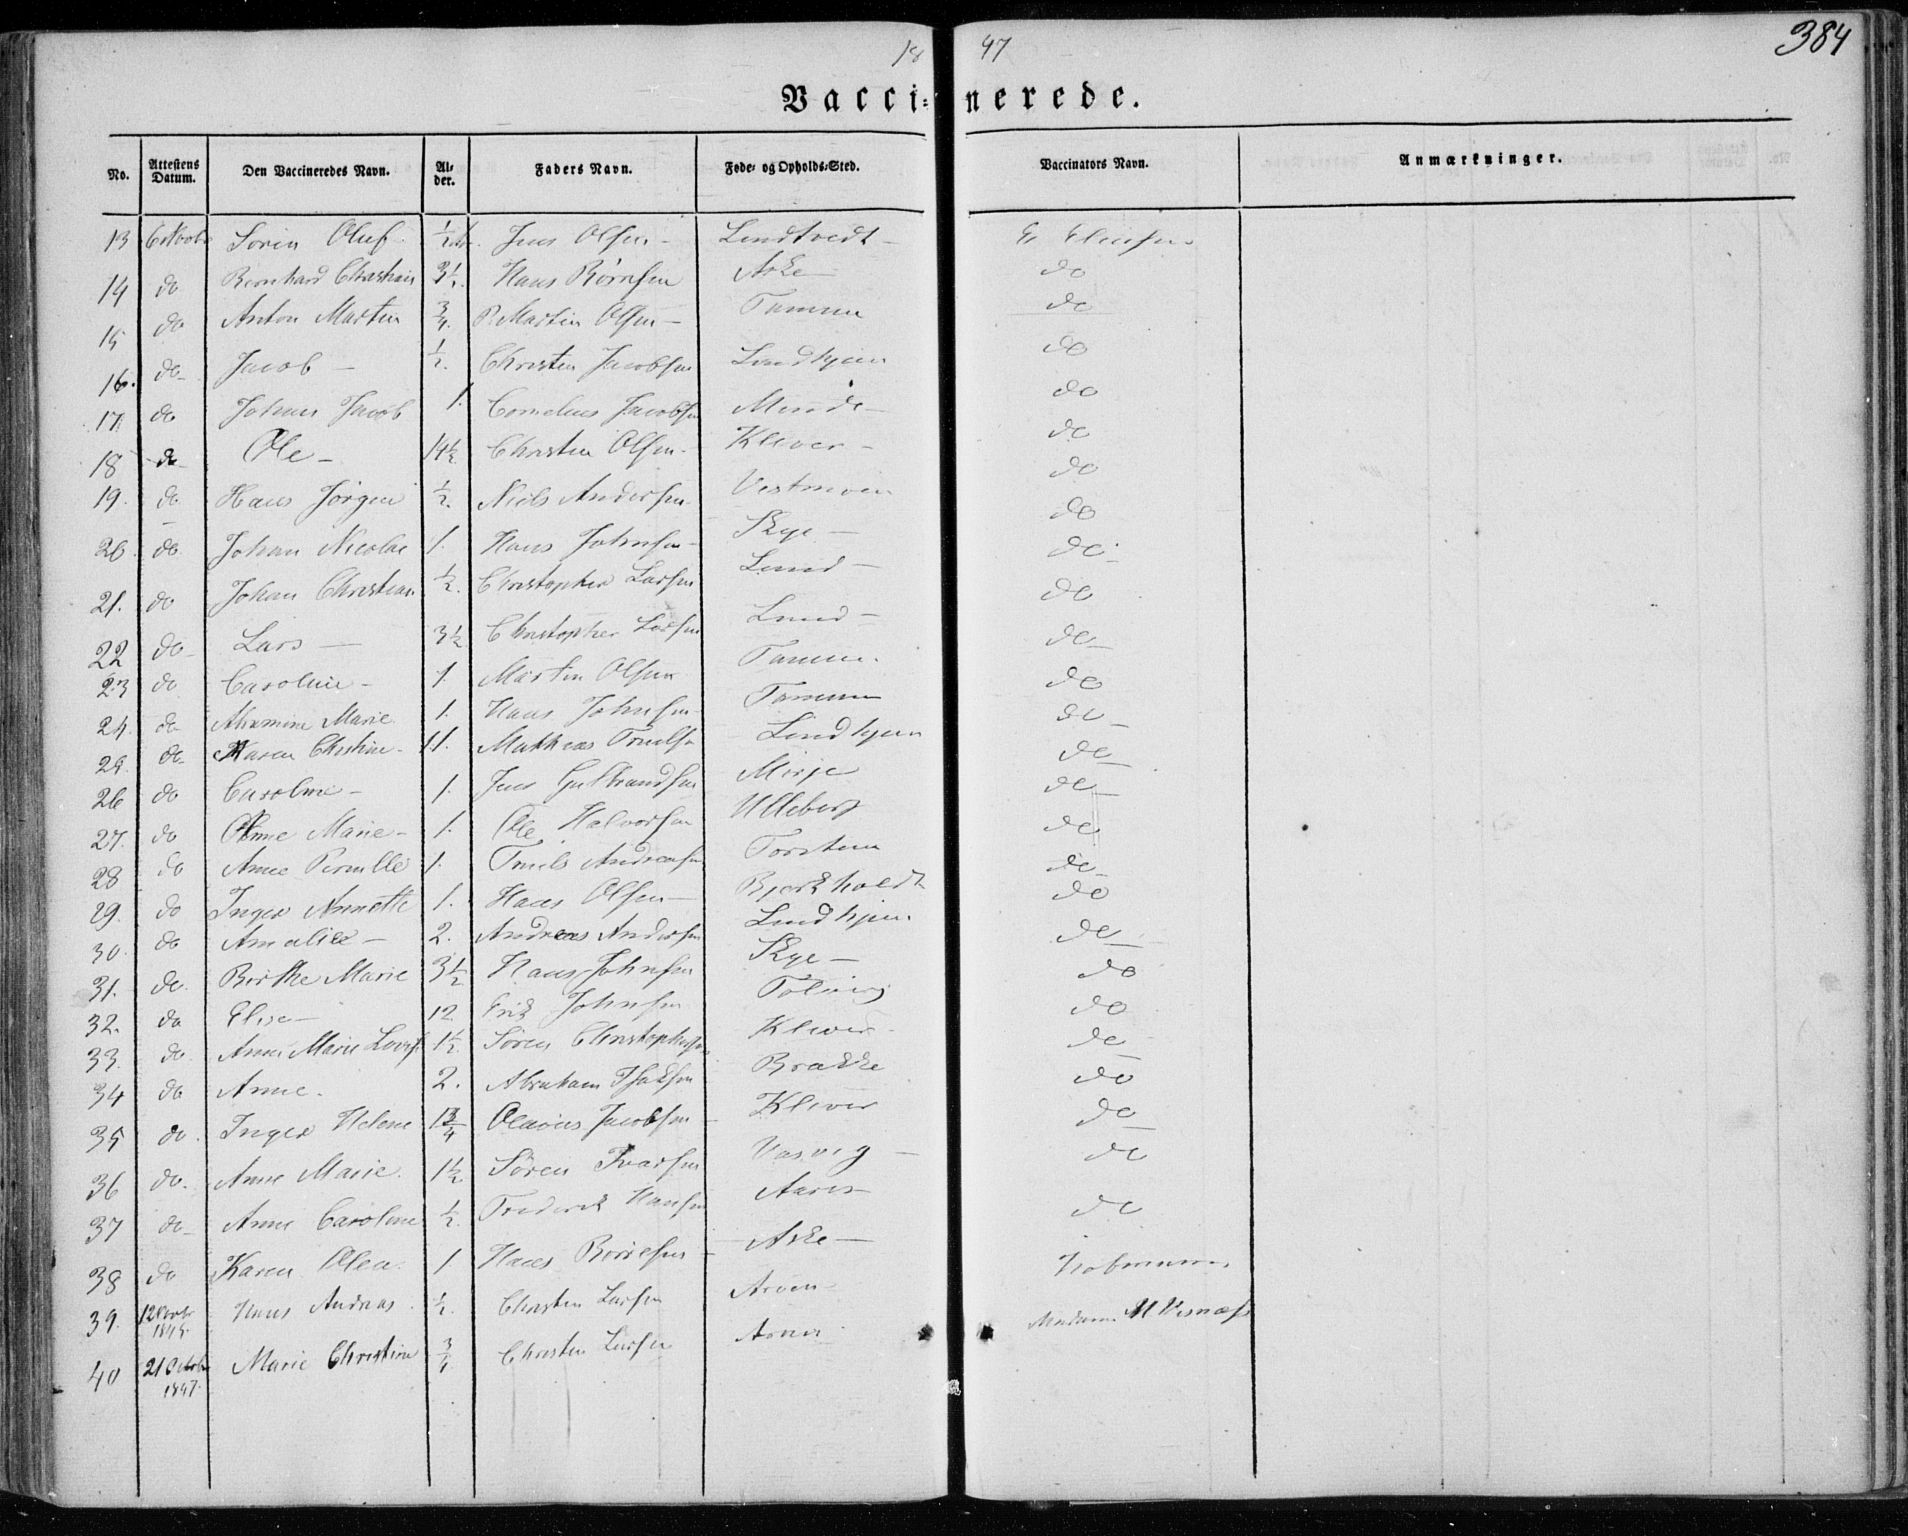 1847
384
Vaccinerede.
No. Attestens Datum. Den Vaccineredes Navn. Alder. Faders Navn. Føde- og Opholds-Sted. Vaccinators Navn. Anmærkninger.
13 6 Novbr Søren Oluf. ½ Jens Olsen - Lundtvedt - E
14 do Bernhard Christian 3½ Hans Børresen Aske do
15 do Anton Martin ¾. Martin Olsen - Tammen do
16. do - Jacob - ½. Christen Jacobsen Lindhjem do
17. do Johan Jacob 1. Cornelius Jacobsen Minde - do
18 do Ole - 14½ Christen Olsen - Klever - do
19. do Hans Jørgen ½. Niels Andersen Vestmoen do
20. do. Johan Nicolai 1. Hans Johnsen - Skye - do
21. do Johan Christian ½. Christopher Larsen Lund - do
22 do - Lars - 3½ Christopher Larsen Lund - do
23 do Caroline - 1. Martin Olsen Tammen do -
24. do Marie 1. Hans Johnsen - Tammen do
25. do - Karen Christine - 11. Mathias Lindhjem do -
26 do Caroline - 1. Jens Gulbrandsen do -
27. do Anne Marie - 1. Ole Halvorsen Ulleberg do -
28 do Anne Pernille 1. Andreasen do
29. do Inger Annette 1. Hans Olsen - Bjerkholdt do -
30. do Amalie - 2. Andreas Andersen Lindhjem do
31. do. Birthe Marie 3½ Hans Johnsen Skye - do -
32. do Elise - 12 Erik Johnsen do
33. do. Anne Marie Lovise 1½. Søren Christophersen Klever - do
34 do Anne. 2. Abraham Isaksen Brække do -
35 do. Inger Helene 1¾ Olavus Jacobsen - Klever do
36 do. Anne Marie. 1½. Søren Ivarsen Vasvig - do -
37 do - Anne Caroline ½. Frederik Hansen do
38 do Karen Olea. 1 Hans Børresen - Aske - do
39. 1845. Hans Andreas. ½. Christen Larsen
40 21 Octbr 1847. Marie Christine ¾ Christen Larsen Madame